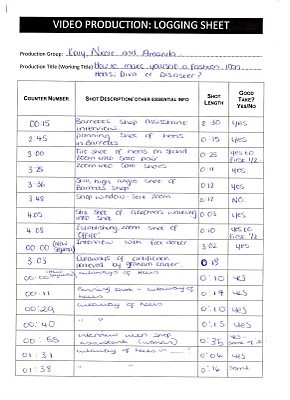 VIDEO PRODUCTION: LOGGING SHEET
Production Group: Kelly, Nicole and Amanda
Production Title (Working Title) How to make yourself a fashion icon
Heels: Diva or Disaster?
COUNTER NUMBER SHOT DESCRIPTION/OTHER ESSENTIAL INFO SHOT LENGTH GOOD TAKE? YES/NO
00:15 Barretts shop assistant interview 2:30 yes
2:45 panning shot of heels in Barretts 0:15 yes
3:00 Tilt shot of heels on stand zoom into sole pair 0:25 yes to first 1/2
3:25 Zoom into same shoes 0:11 yes
3:36 high angle shot of Barretts shop 0:12 yes
3:48 Shop window - zoom 0:17 NO.
4:05 shot of walking into shot 0:03 yes
4:08 Establishing zoom shot of office 0:10 yes to first 1/2
00:00 (New Sequence) Interview with foot doctor 3:02 yes
3:03 of certificate 0:18
00:00 cutaways of heels 0:10 yes
00:11 Panning shot - cutaway of heels 0:17 yes
00:29 cutaway of heels 0:10 yes
00:40 " " 0:15 yes
00:55 interview with shop assistant (woman) 0:36 yes - some of it
01:31 cutaway of heels in 0:06 yes
01:38 " " 0:16 some